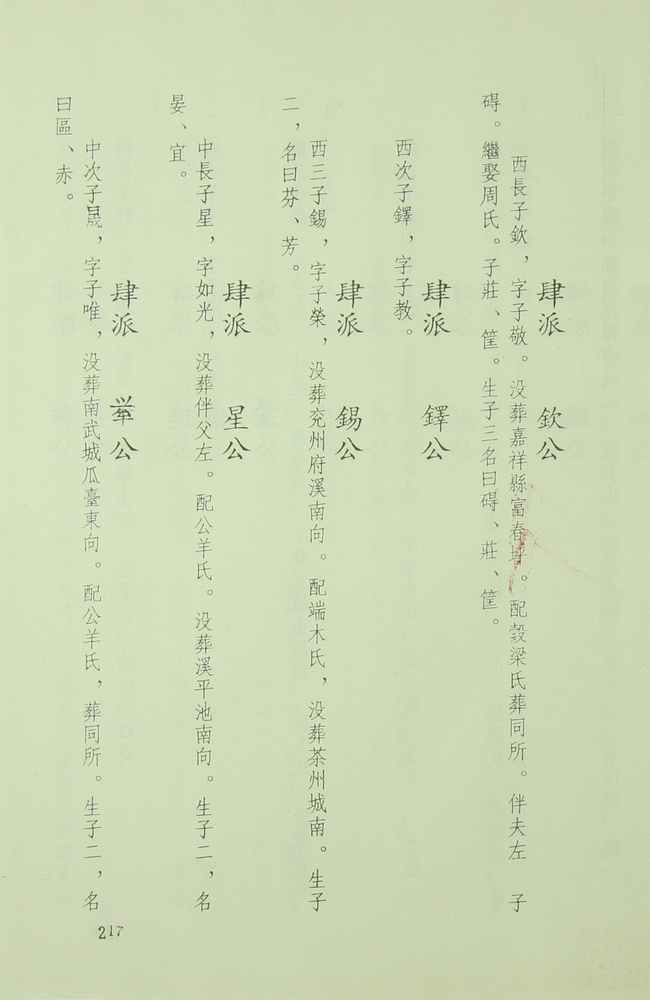 肆派 欽公
西長子欽，字子敬。没葬嘉祥縣富春。配穀梁氏葬同所。伴夫左 子
碍。繼娶周氏。子莊、筐。生子三名曰碍、莊、筐。
肆派 鐸公
西次子鐸，字子教。
肆派 錫公
西三子錫，字子榮，没葬兖州府溪南向。配端木氏，没葬茶州城南。生子
二，名曰芬、芳。
肆派 星公
中長子星，字如光，没葬伴父左。配公羊氏。没葬溪平池南向。生子二，名
晏、宜。
肆派 公
中次子晟，字子唯，没葬南武城瓜臺東向。配公羊氏，葬同所。生子二，名
曰區、赤。
217